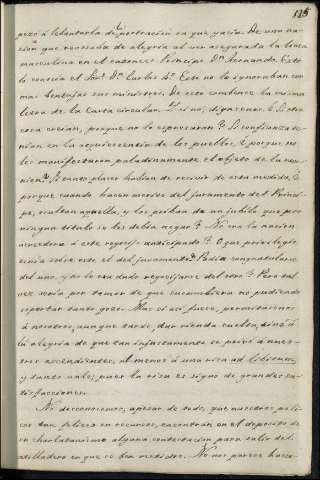 115
pezó á lebantarla de la postracion en que yacía. De una na-
cion que rebosaba de alegria al ver asegurada la linea
masculina en el entonces Principe Dn. Fernando. Esto
lo conocia el Sor. Dn. Carlos 4º. Esto no lo ignoraban con
mas bentajas sus ministros. De esto combence la misma
letra de la Carta circular. Y si no, digasenos: ¿Si otra
cosa creian, porque no lo espresaron? Si confianza te-
nian en la aquiescencia de los pueblos, ¿porque no
les manifestaron paladinamente el objeto de la reu-
nion? Si tanto placer habian de recivir de esta medida, ¿
porque cuando hacen merito del juramento del Princi-
pe, ocultan aquella, y los privan de un jubilo que por
ningun titulo se les debia negar? ¿No era la nacion
acreedora á este regocijo anticipado? ¿O que privilegio
tenia sobre este el del juramento? ¿Podia congratularse
del uno, y no le era dado regocijarse del otro? Pero tal
vez seria por temor de que sucumbiera no pudiendo
soportar tanto gozo. Mas si asi fuere, permitasenos
á nosotros, aunque tarde, dar rienda suelta, sino á
la alegria de que tan injustamente se privó á nues-
tros ascendientes, al menos á una risa ad libitum,
y tanto vale; pues la risa es signo de grandes sa-
tisfacciones.
No desconocemos, apesar de todo, que nuestros poli-
cos tan felices en recursos, encontrarán en el deposito de
su charlatanismo alguna contestacion para salir del
atolladero en que se ben metidos. No nos parece hacer-